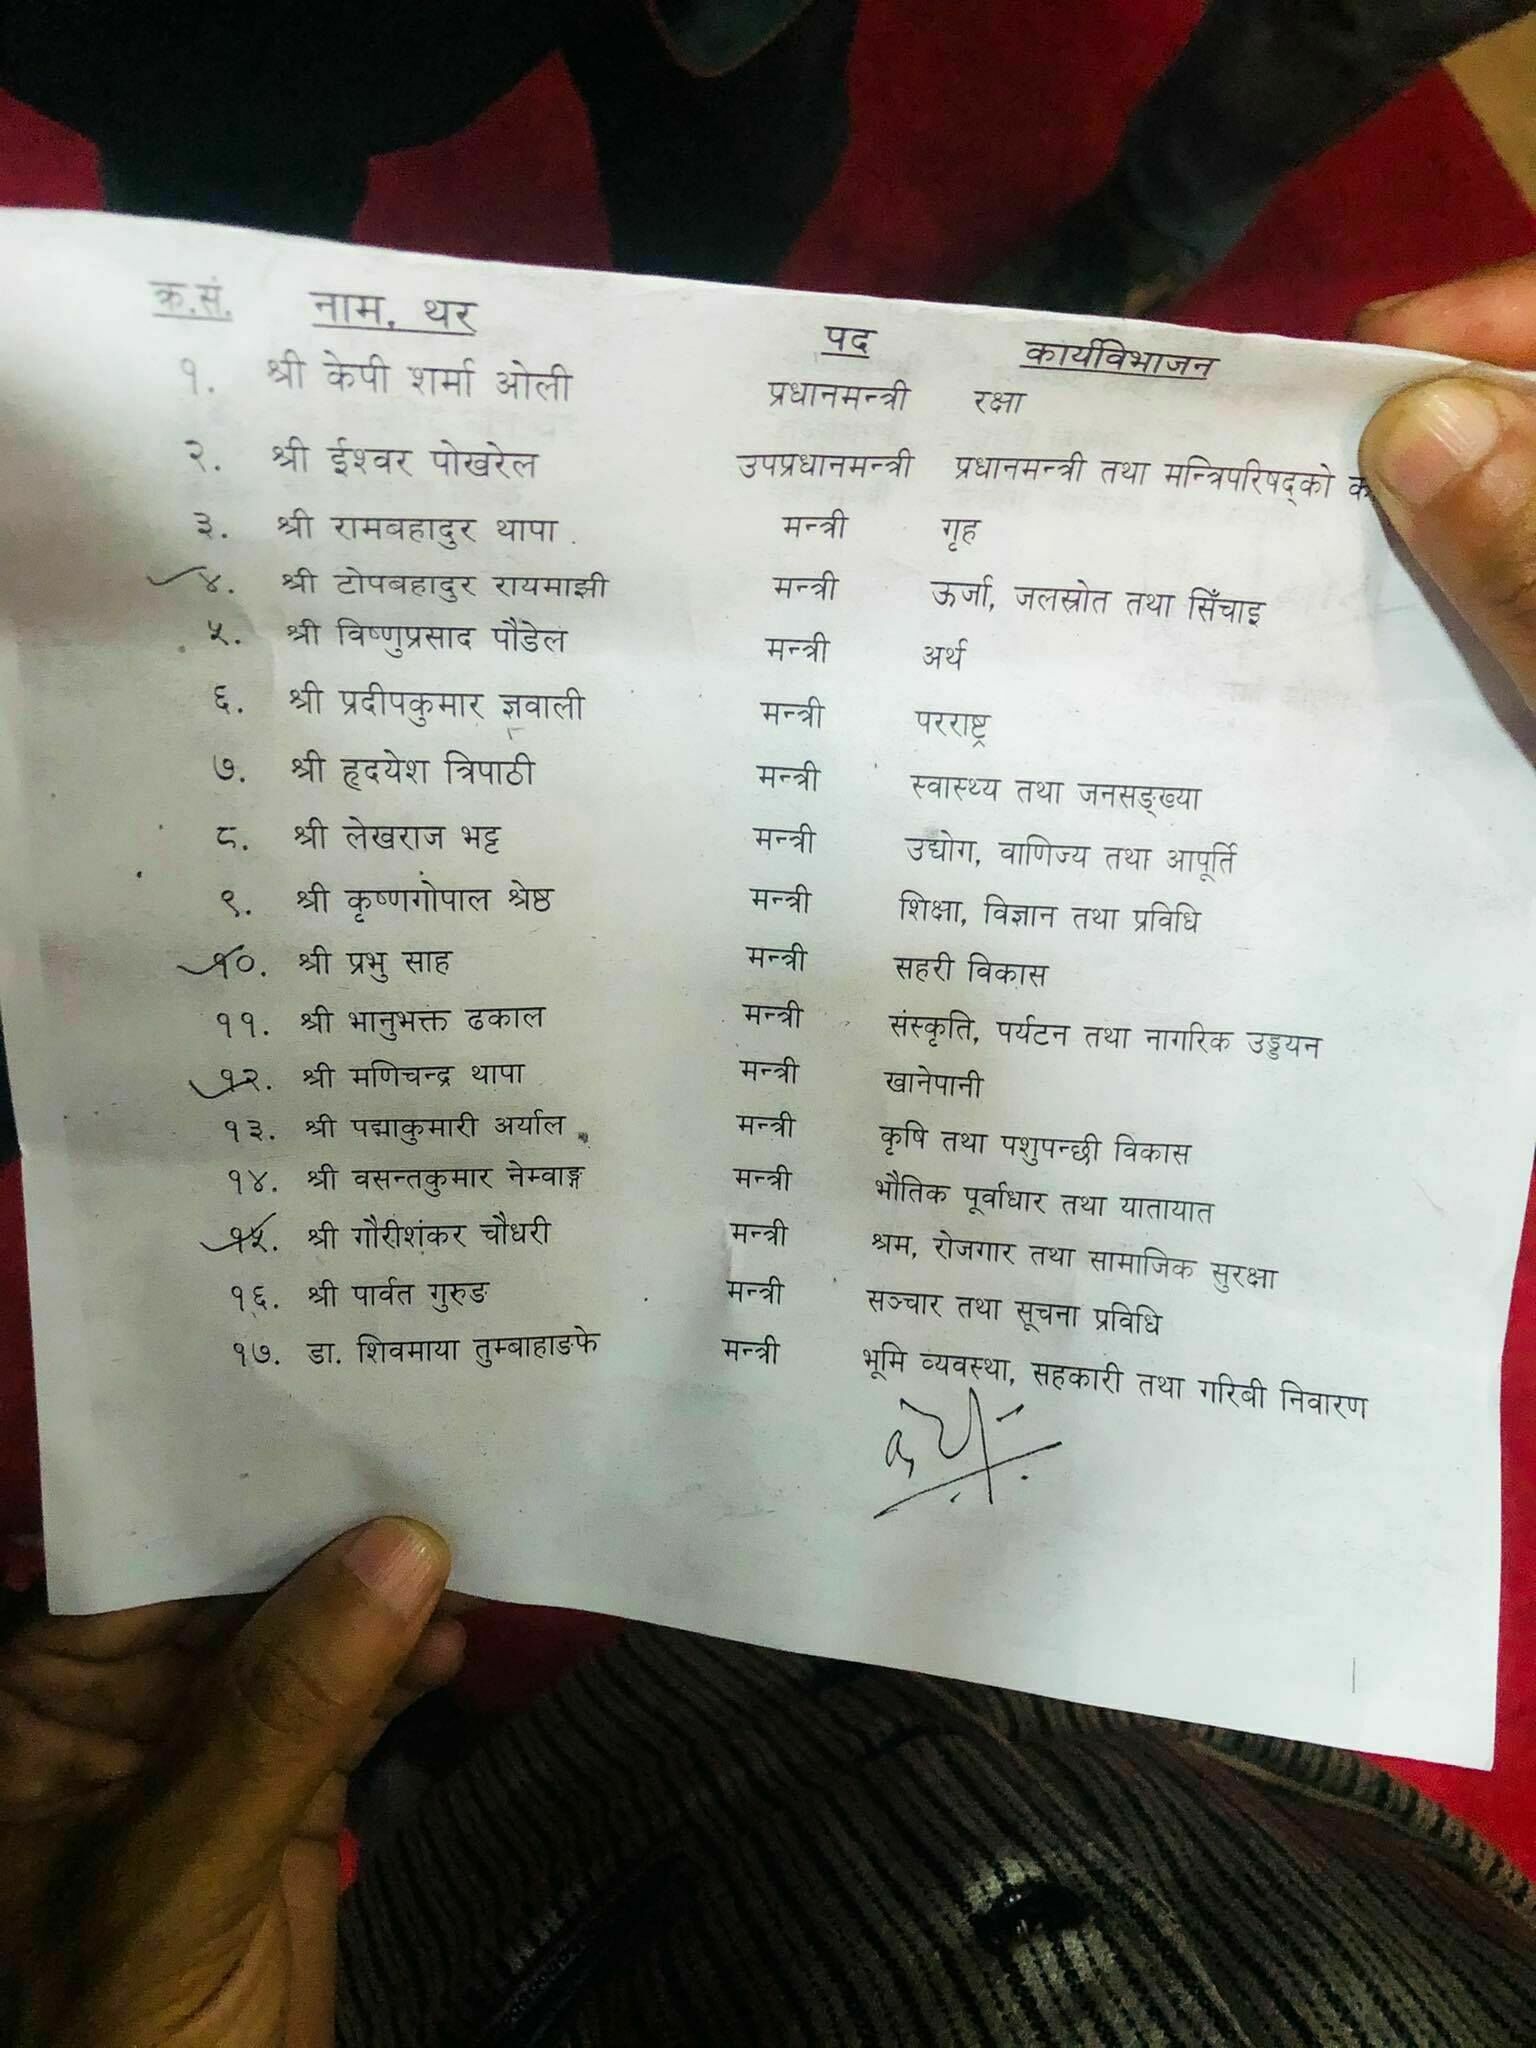 क्र.सं. नाम, थर पद कार्यविभाजन
१. श्री केपी शर्मा ओली प्रधानमन्त्री रक्षा
२. श्री ईश्वर पोखरेल उपप्रधानमन्त्री प्रधानमन्त्री तथा मन्त्रिपरिषद्को
३. श्री रामबहादुर थापा मन्त्री गृह
४. श्री टोपबहादुर रायमाझी मन्त्री ऊर्जा, जलस्रोत तथा सिँचाइ
५. श्री विष्णुप्रसाद पौडेल मन्त्री अर्थ
६. श्री प्रदीपकुमार ज्ञवाली मन्त्री परराष्ट्र
७. श्री हृदयेश त्रिपाठी मन्त्री स्वास्थ्य तथा जनसङ्ख्या
८. श्री लेखराज भट्ट मन्त्री उद्योग, वाणिज्य तथा आपूर्ति
९. श्री कृष्णगोपाल श्रेष्ठ मन्त्री शिक्षा, विज्ञान तथा प्रविधि
१०. श्री प्रभु साह मन्त्री सहरी विकास
११. श्री भानुभक्त ढकाल मन्त्री संस्कृति, पर्यटन तथा नागरिक उड्डयन
१२. श्री मणिचन्द्र थापा मन्त्री खानेपानी
१३. श्री पद्माकुमारी अर्याल मन्त्री कृषि तथा पशुपन्छी विकास
१४. श्री वसन्तकुमार नेम्वाङ्ग मन्त्री भौतिक पूर्वाधार तथा यातायात
१५. श्री गौरीशंकर चौधरी मन्त्री श्रम, रोजगार तथा सामाजिक सुरक्षा
१६. श्री पार्वत गुरुङ मन्त्री सञ्चार तथा सूचना प्रविधि
१७. डा. शिवमाया तुम्बाहाङफे मन्त्री भूमि व्यवस्था, सहकारी तथा गरिबी निवारण